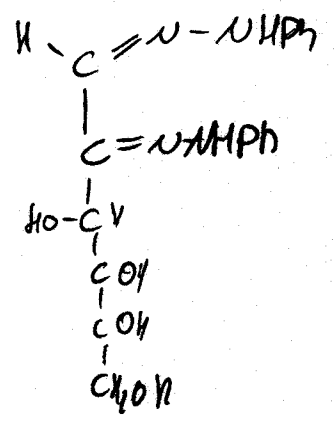 H C=N-NHPh
C=NNHPh
HO-C H
C OH
C OH
CH₂OH